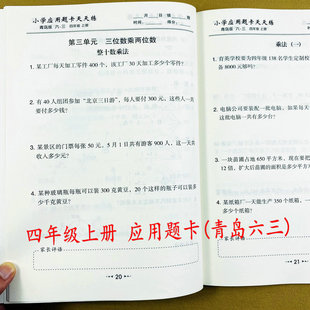 小学应用题卡天天练
青岛版 六·三 四年级 上册
第三单元 三位数乘两位数
整十数乘法
1. 某工厂每天加工零件 400 个,该工厂 30 天加工多少个零件?
2. 有 40 人组团参加“北京三日游”,每人要付 300 元,这些人一共
要付多少钱?
3. 某景区的门票每张 50 元,5 月 1 日共有游客 900 人,这一天共
收入多少元?
4. 某种玻璃瓶每瓶可以装 300 克黄豆,20 个这样的瓶子可以装多
少千克黄豆?
家长评语
20
小学应用题卡天天练
青岛版 六·三 四年级 上册
乘法(一)
1. 育英学校要为四年级 138 名学生定制校
备 8000 元够吗?
2. 电脑公司要装配一批电脑,
这批电脑一共有多少台?
3. 一块苗圃占地 650 平方米,现在要把
12 倍,扩大后苗圃的面积是多少平
4. 某纸箱厂一天能生产 350 个纸箱,
多少个纸箱?
家长评语
21
四年级上册 应用题卡(青岛六三)